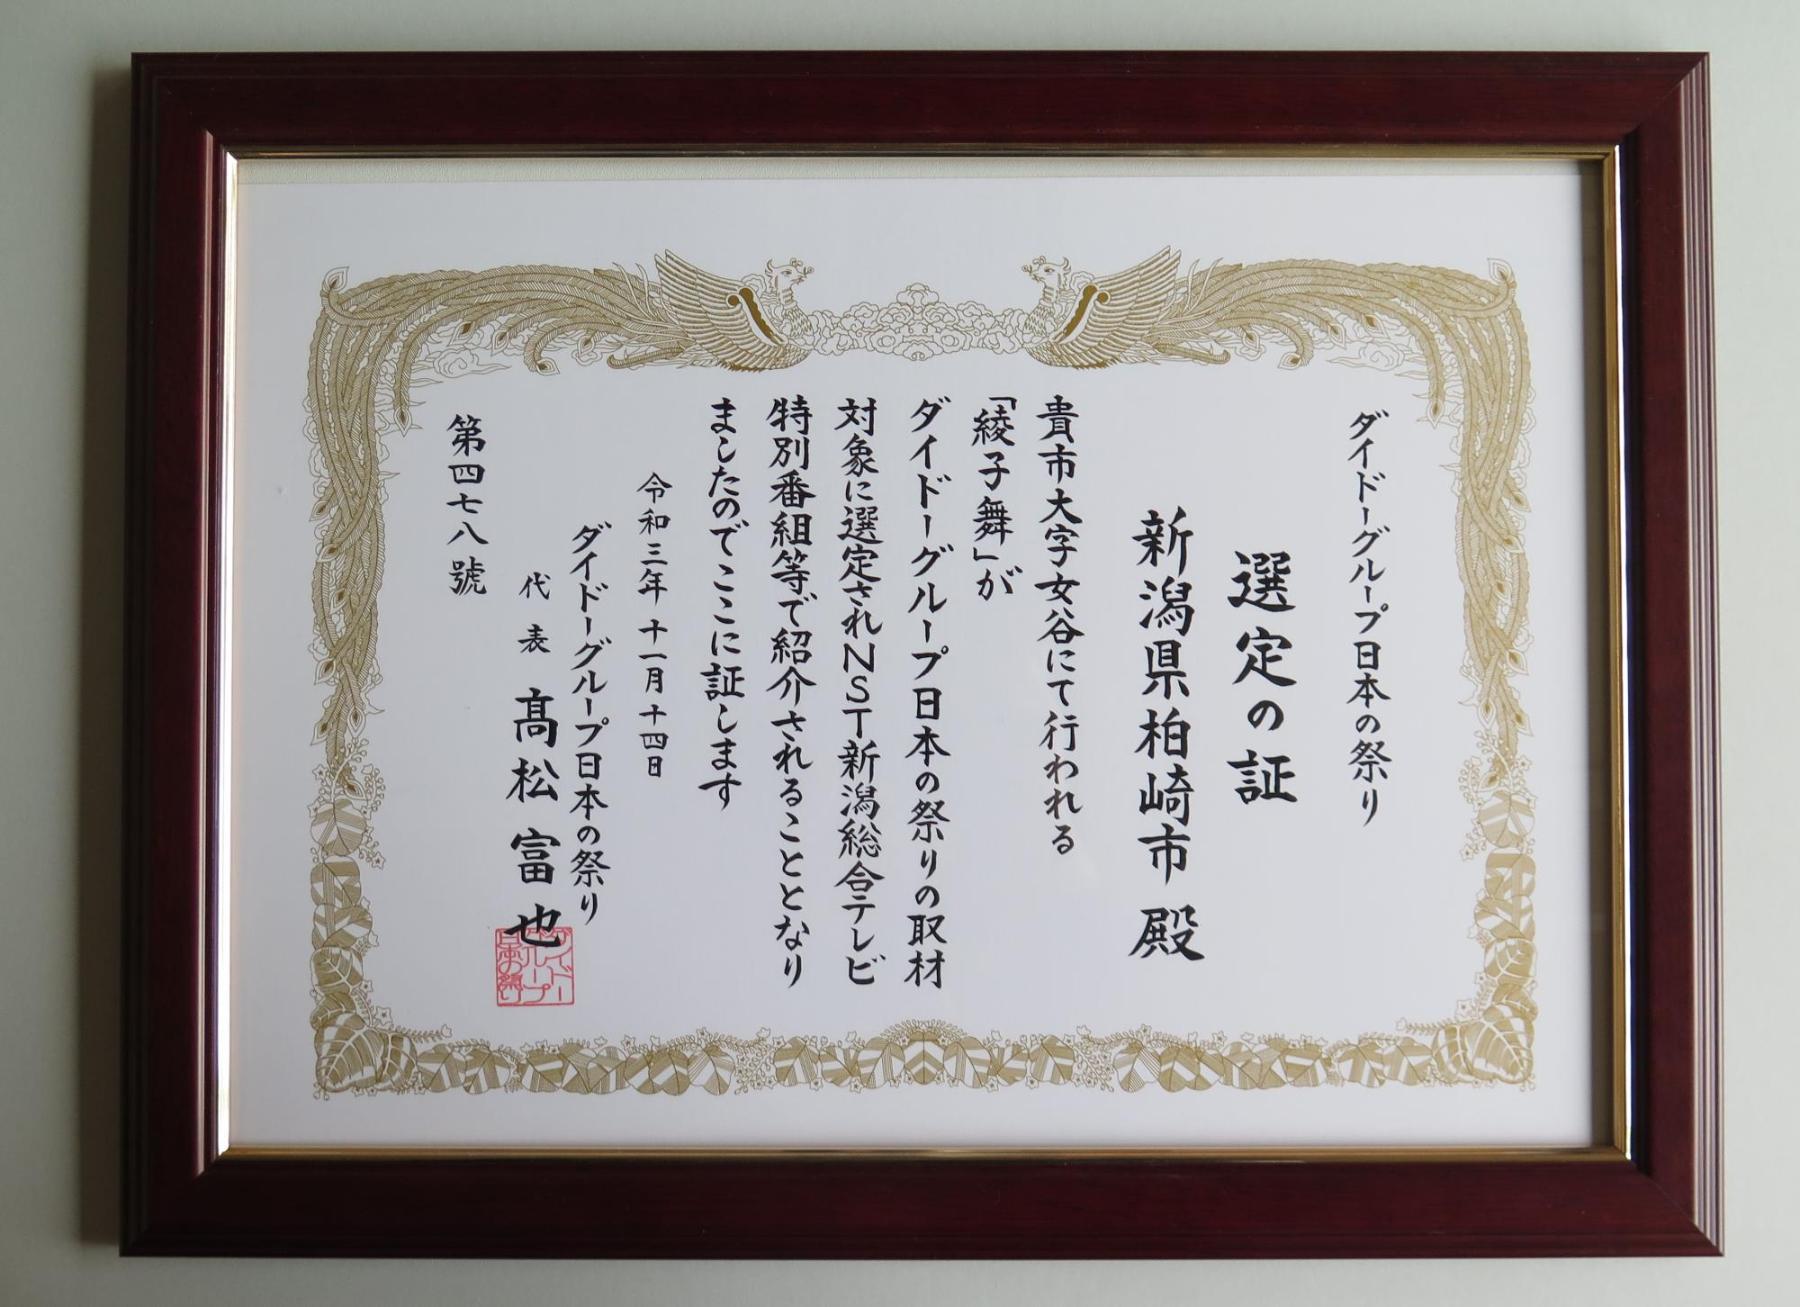 ダイドーグループ日本の祭り
選定の証
新潟県柏崎市 殿
貴市大字女谷にて行われる
「綾子舞」が
ダイドーグループ日本の祭りの取材
対象に選定されNST新潟総合テレビ
特別番組等で紹介されることとなり
ましたのでここに証します
令和三年十一月十四日
ダイドーグループ日本の祭り
代表 髙松富也
ダイドーグループ日本の祭り
第四七八號